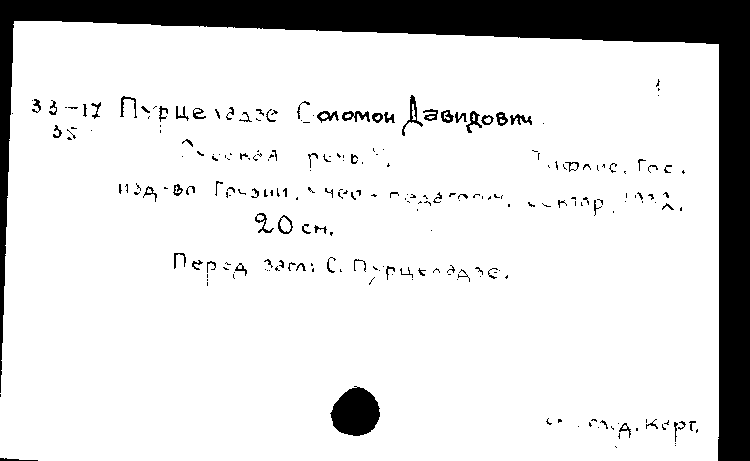 33-17 Пурцеладзе Соломон Давидович
35
Русская речь. Тифлис. Гос.
изд-во Грузии. Учеб.-педагогич. сектор. 1932.
20 см.
Перед загл: С. Пурцеладзе.
след. карт.